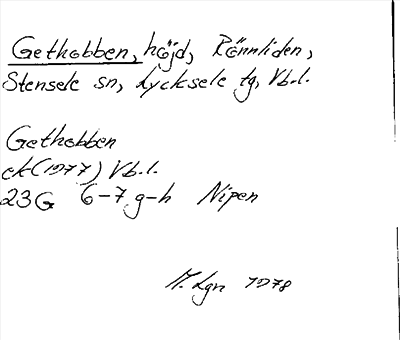 Gethobben, höjd, Rönnliden,
Stensele sn, Lycksele tg, Vb.l.
Gethobben
ek (1977) Vb.l.
23G 6-7 g-h Nipen
M. Lgn 1978